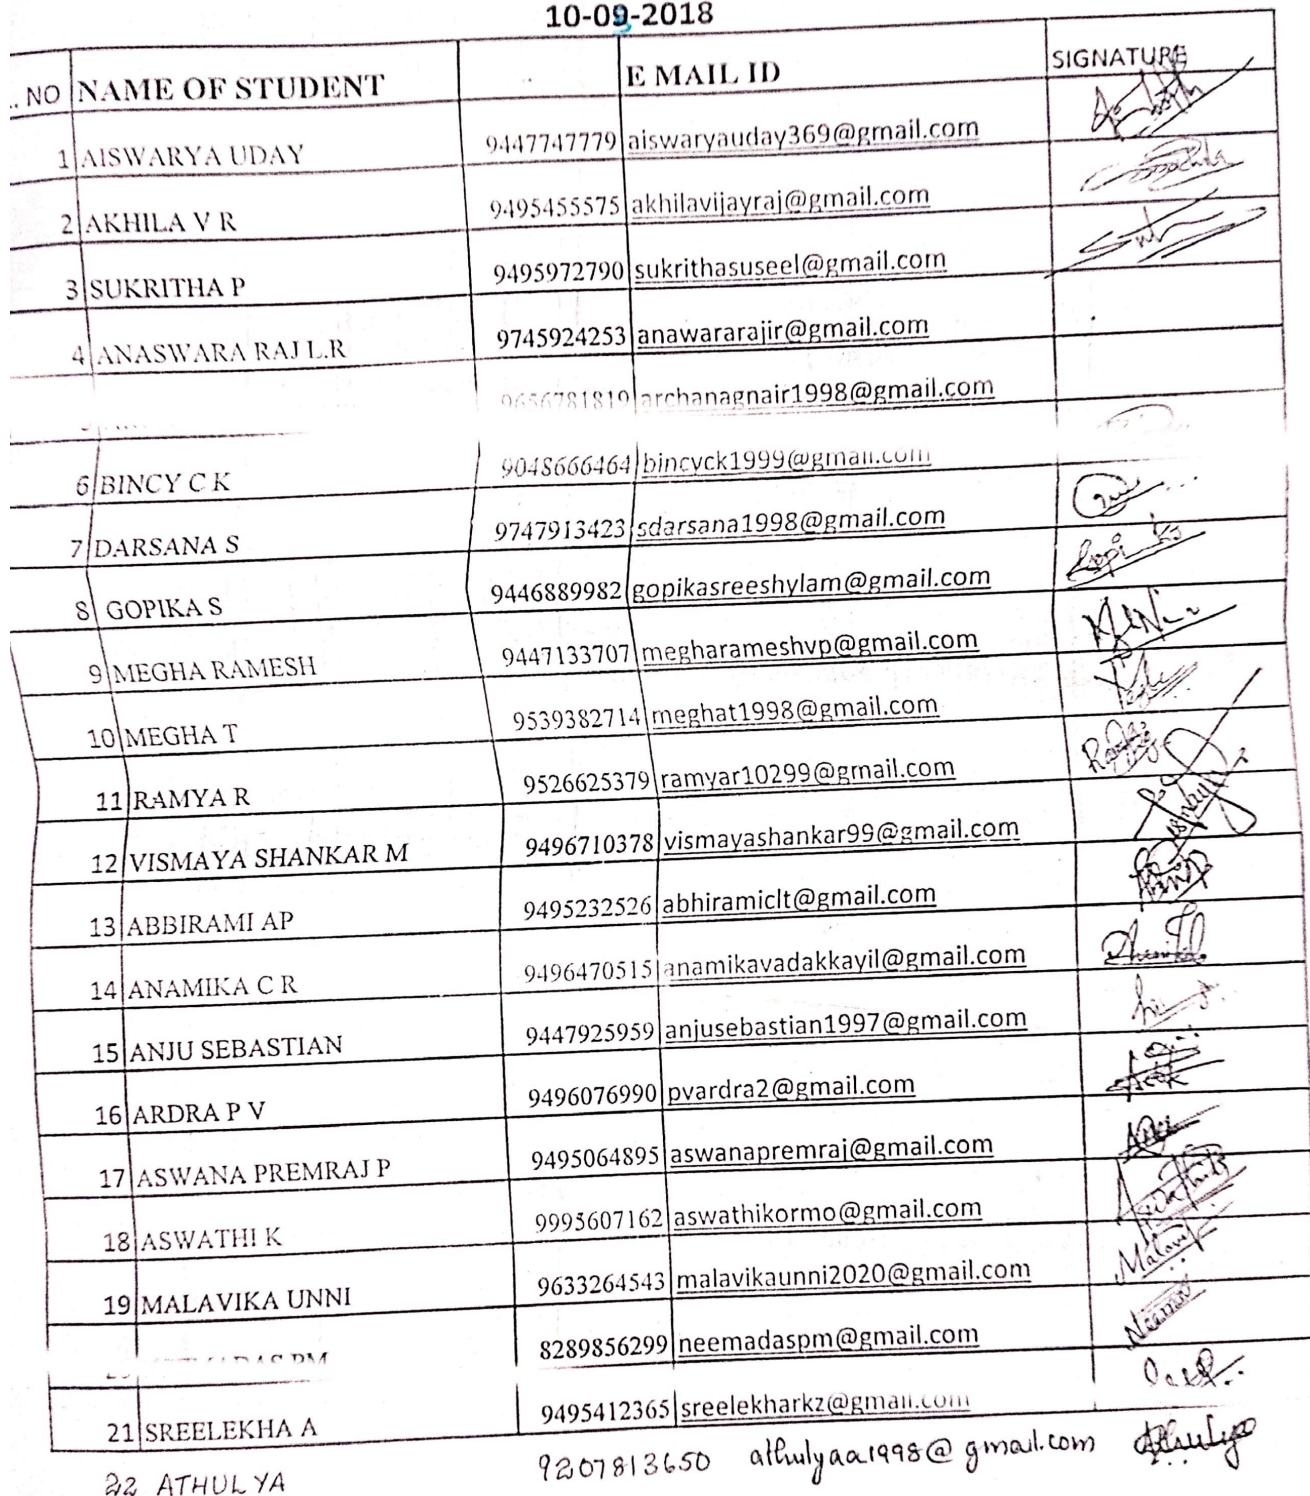 10-09-2018
. NO NAME OF STUDENT E MAIL ID SIGNATURE
1 AISWARYA UDAY 9447747779 aiswaryauday369@gmail.com
2 AKHILA V R 9495455575 akhilavijayraj@gmail.com
3 SUKRITHA P 9495972790 sukrithasuseel@gmail.com
4 ANASWARA RAJ L.R 9745924253 anawararajir@gmail.com
9656781819 archanagnair1998@gmail.com
6 BINCY C K 9048666464 bincyck1999@gmail.com
7 DARSANA S 9747913423 sdarsana1998@gmail.com
8 GOPIKA S 9446889982 gopikasreeshylam@gmail.com
9 MEGHA RAMESH 9447133707 megharameshvp@gmail.com
10 MEGHA T 9539382714 meghat1998@gmail.com
11 RAMYA R 9526625379 ramyar10299@gmail.com
12 VISMAYA SHANKAR M 9496710378 vismayashankar99@gmail.com
13 ABBIRAMI AP 9495232526 abhiramiclt@gmail.com
14 ANAMIKA C R 9496470515 anamikavadakkayil@gmail.com
15 ANJU SEBASTIAN 9447925959 anjusebastian1997@gmail.com
16 ARDRA P V 9496076990 pvardra2@gmail.com
17 ASWANA PREMRAJ P 9495064895 aswanapremraj@gmail.com
18 ASWATHI K 9995607162 aswathikormo@gmail.com Aswathi K
19 MALAVIKA UNNI 9633264543 malavikaunni2020@gmail.com Malavika
8289856299 neemadaspm@gmail.com
21 SREELEKHA A 9495412365 sreelekharkz@gmail.com
22 ATHULYA 9207813650 athulyaa1998@gmail.com Athulya